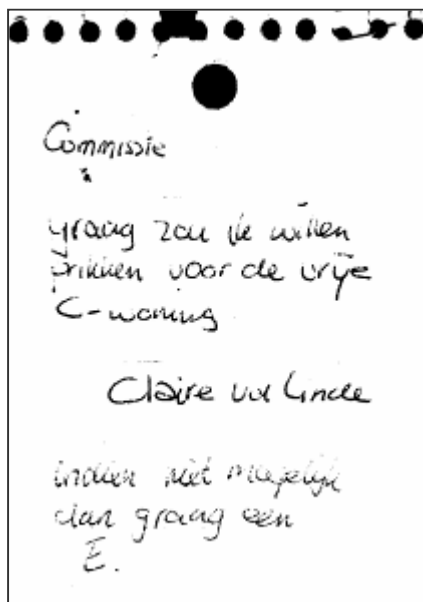 Commissie
graag zou ik willen
prikken voor de vrije
C-woning
Claire vd Linde
indien niet mogelijk
dan graag een
E.